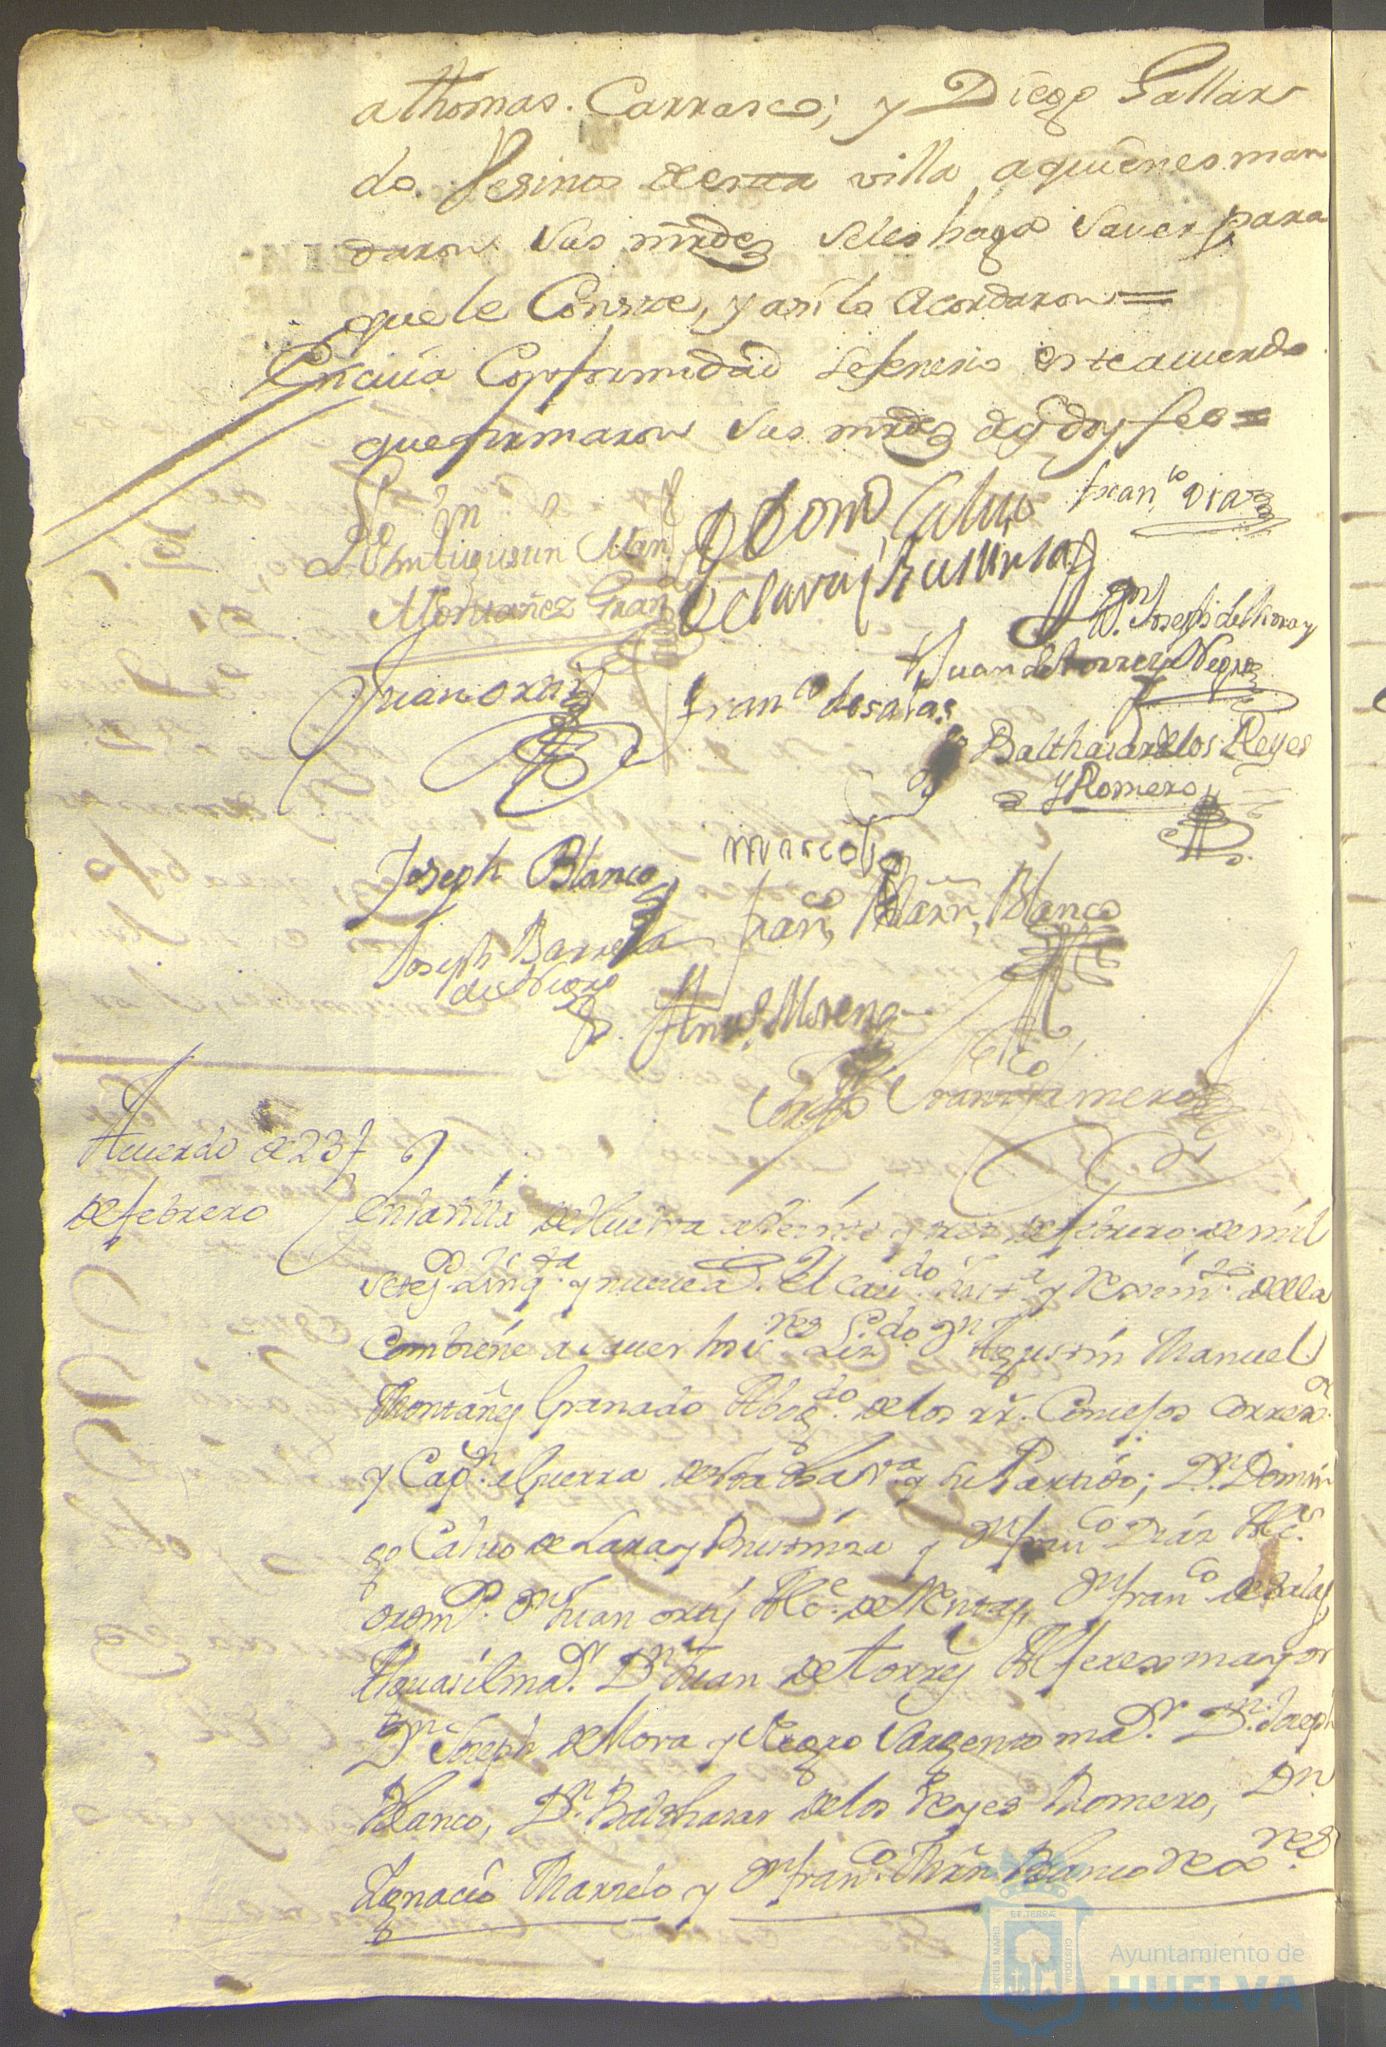 a thomas. Carrasco; y Diego Gallar
do. Vesinos de esta villa aquienes man
daron sus mrdes seles haga saver para
que le Conste, y asi lo acordaron =
En cuia Conformidad sefenesio este acuerdo
que firmaron sus mrdes de q doy fee =
Ldo Dn Augustin Man
Montañez Gran
D Domo Calvo
de Lara y Bustinza
Franco Diaz
Dn Joseph de Mora y
Negro
Juan de torres
Juan Ortiz
Franco de salas
Balthasar de los Reyes
y Romero
Joseph Blanco
Marcos
Franco Marn Blanco
Joseph Barrera
de
Anto Moreno
Franco Romero
Acuerdo de 23
de febrero
En la villa de Huelva a Veinte y tres de febrero de mil
setesos Cinqta y nueve as. El Cavdo Justa y Reximto della
Combiene a saver los sres Lizdo Dn Agustin Manuel
Montañez Granado Abogdo de los rs. Consejos Correxor
y Capn a Guerra de esta dha va y su Partido; Dn Domin
go Calvo de Lara y Bustinza y Dn franco Diaz Alces
ordins Dn Juan ortiz Alce de Mentas, Dn franco de Salas
Alguasil mor Dn Juan de torres Alferes mayor
Dn Joseph de Mora y Negro Sargento mor Dn Joseph
Blanco, Dn Balthasar de los Reyes Romero, Dn
Ignacio y Dn franco Mrn Blanco Rexres
Ayuntamiento de
HUELVA